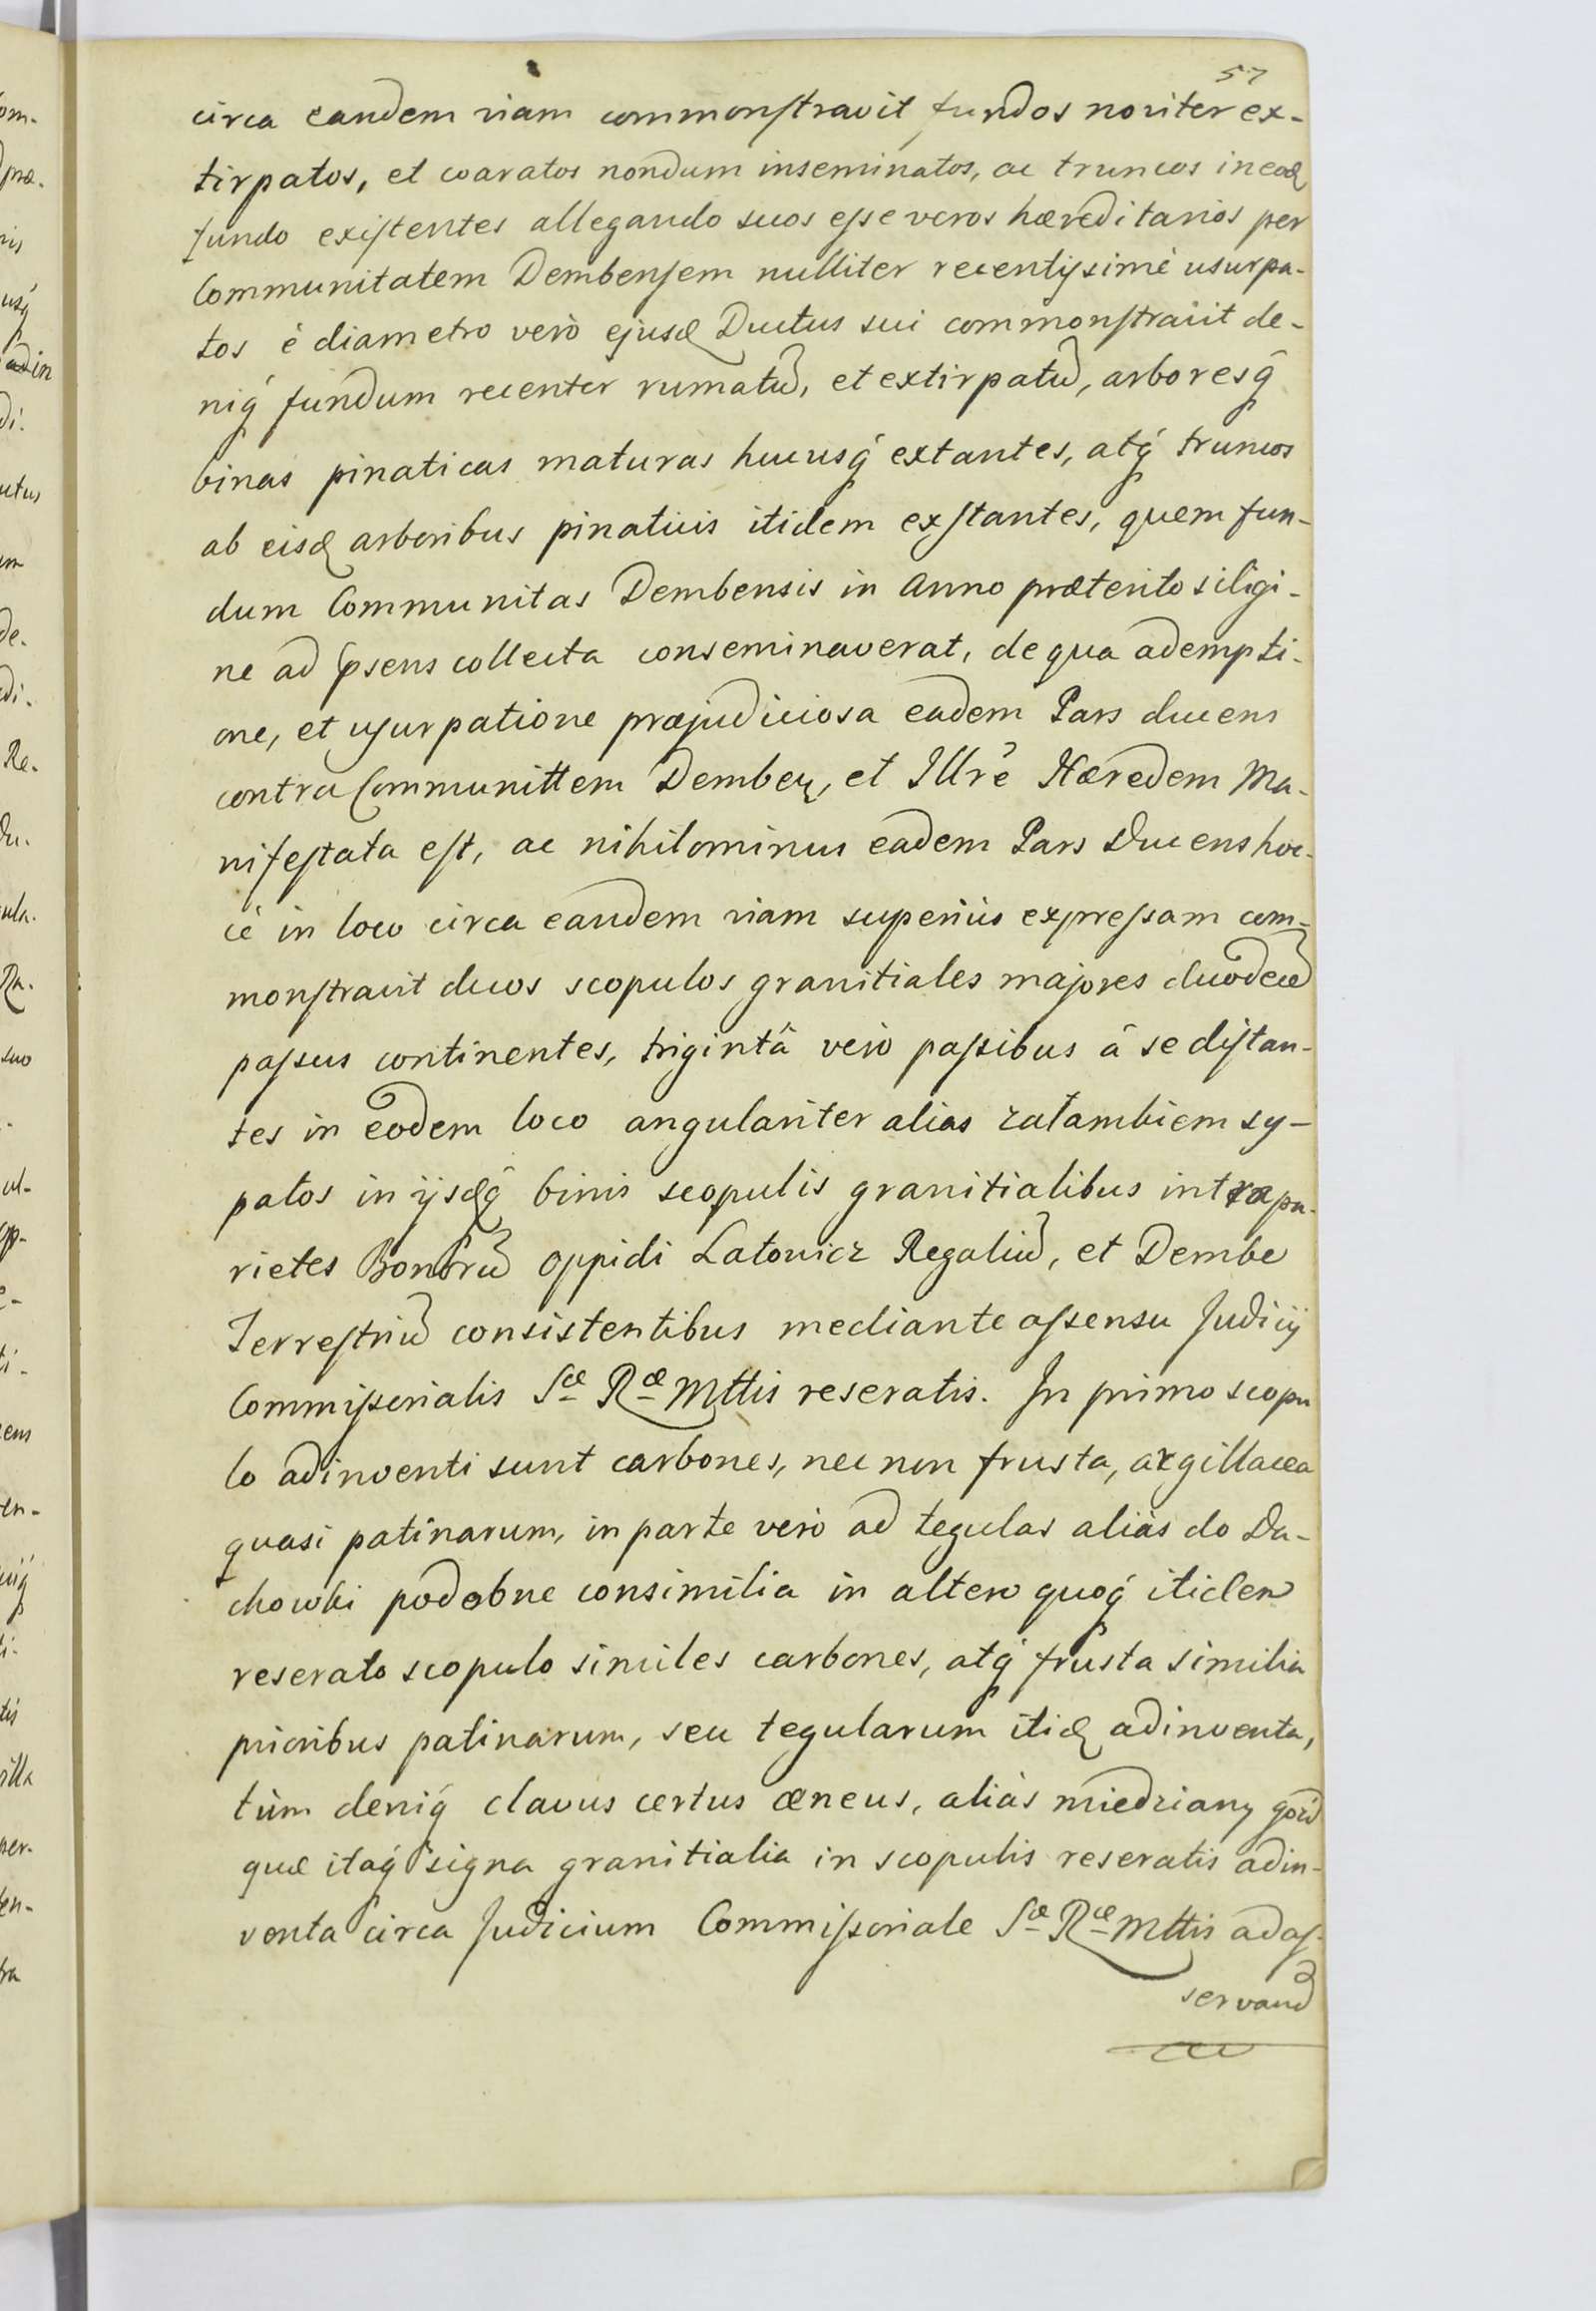 57
circa eandem viam commonstravit fundos noviter ex-
tirpatos, et coaratos nondum inseminatos, ac truncos in eod
fundo existentes allegando suos esse veros hæreditarios per
Communitatem Dembensem nulliter recentissimè usurpa-
tos è diametro verò ejusd Ductus sui commonstravit de-
niq́ fundum recenter rumatū, et extirpatū, arboresq́
binas pinaticas maturas hucusq́ extantes, atq́ truncos
ab eisd arboribus pinaticis itidem exstantes, quem fun-
dum Communitas Dembensis in Anno præterito siligi-
ne ad psens collecta conseminaverat, de qua adempti-
one, et usurpatione præjudiciosa eadem Pars ducens
contra Communittem Demben, et Illrē Hæredem Ma-
nifestata est, ac nihilominus eadem Pars Ducens hoc-
cè in loco circa eandem viam superiùs expressam com-
monstravit duos scopulos granitiales majores duodecē
passus continentes, trigintâ verò passibus â se distan-
tes in eodem loco angulariter alias zatambiem sy-
patos in ijsdq́ binis scopulis granitialibus intra pa-
rietes Bonorū Oppidi Latowicz Regaliū, et Dembe
Terrestriū consistentibus mediante assensu Judicij
Commissorialis Sæ Ræ Mttis reseratis. In primo scopu
lo adinventi sunt carbones, nec non frusta, argillacea
quasi patinarum, in parte verò ad tegulas aliàs do Da-
chowki podobne consimilia in altero quoq́ itidem
reserato scopulo similes carbones, atq́ frusta similia
prioribus patinarum, seu tegularum itid adinventa,
tùm deniq́ clavus certus æneus, aliàs miedziany goźd
quæ itaq́ signa granitialia in scopulis reseratis adin-
venta circa Judicium Commissoriale Sæ Ræ Mttis adas-
servand